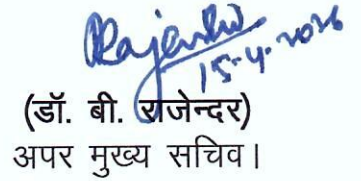 Rajender
15-4-2026
(डॉ. बी. राजेन्दर)
अपर मुख्य सचिव।